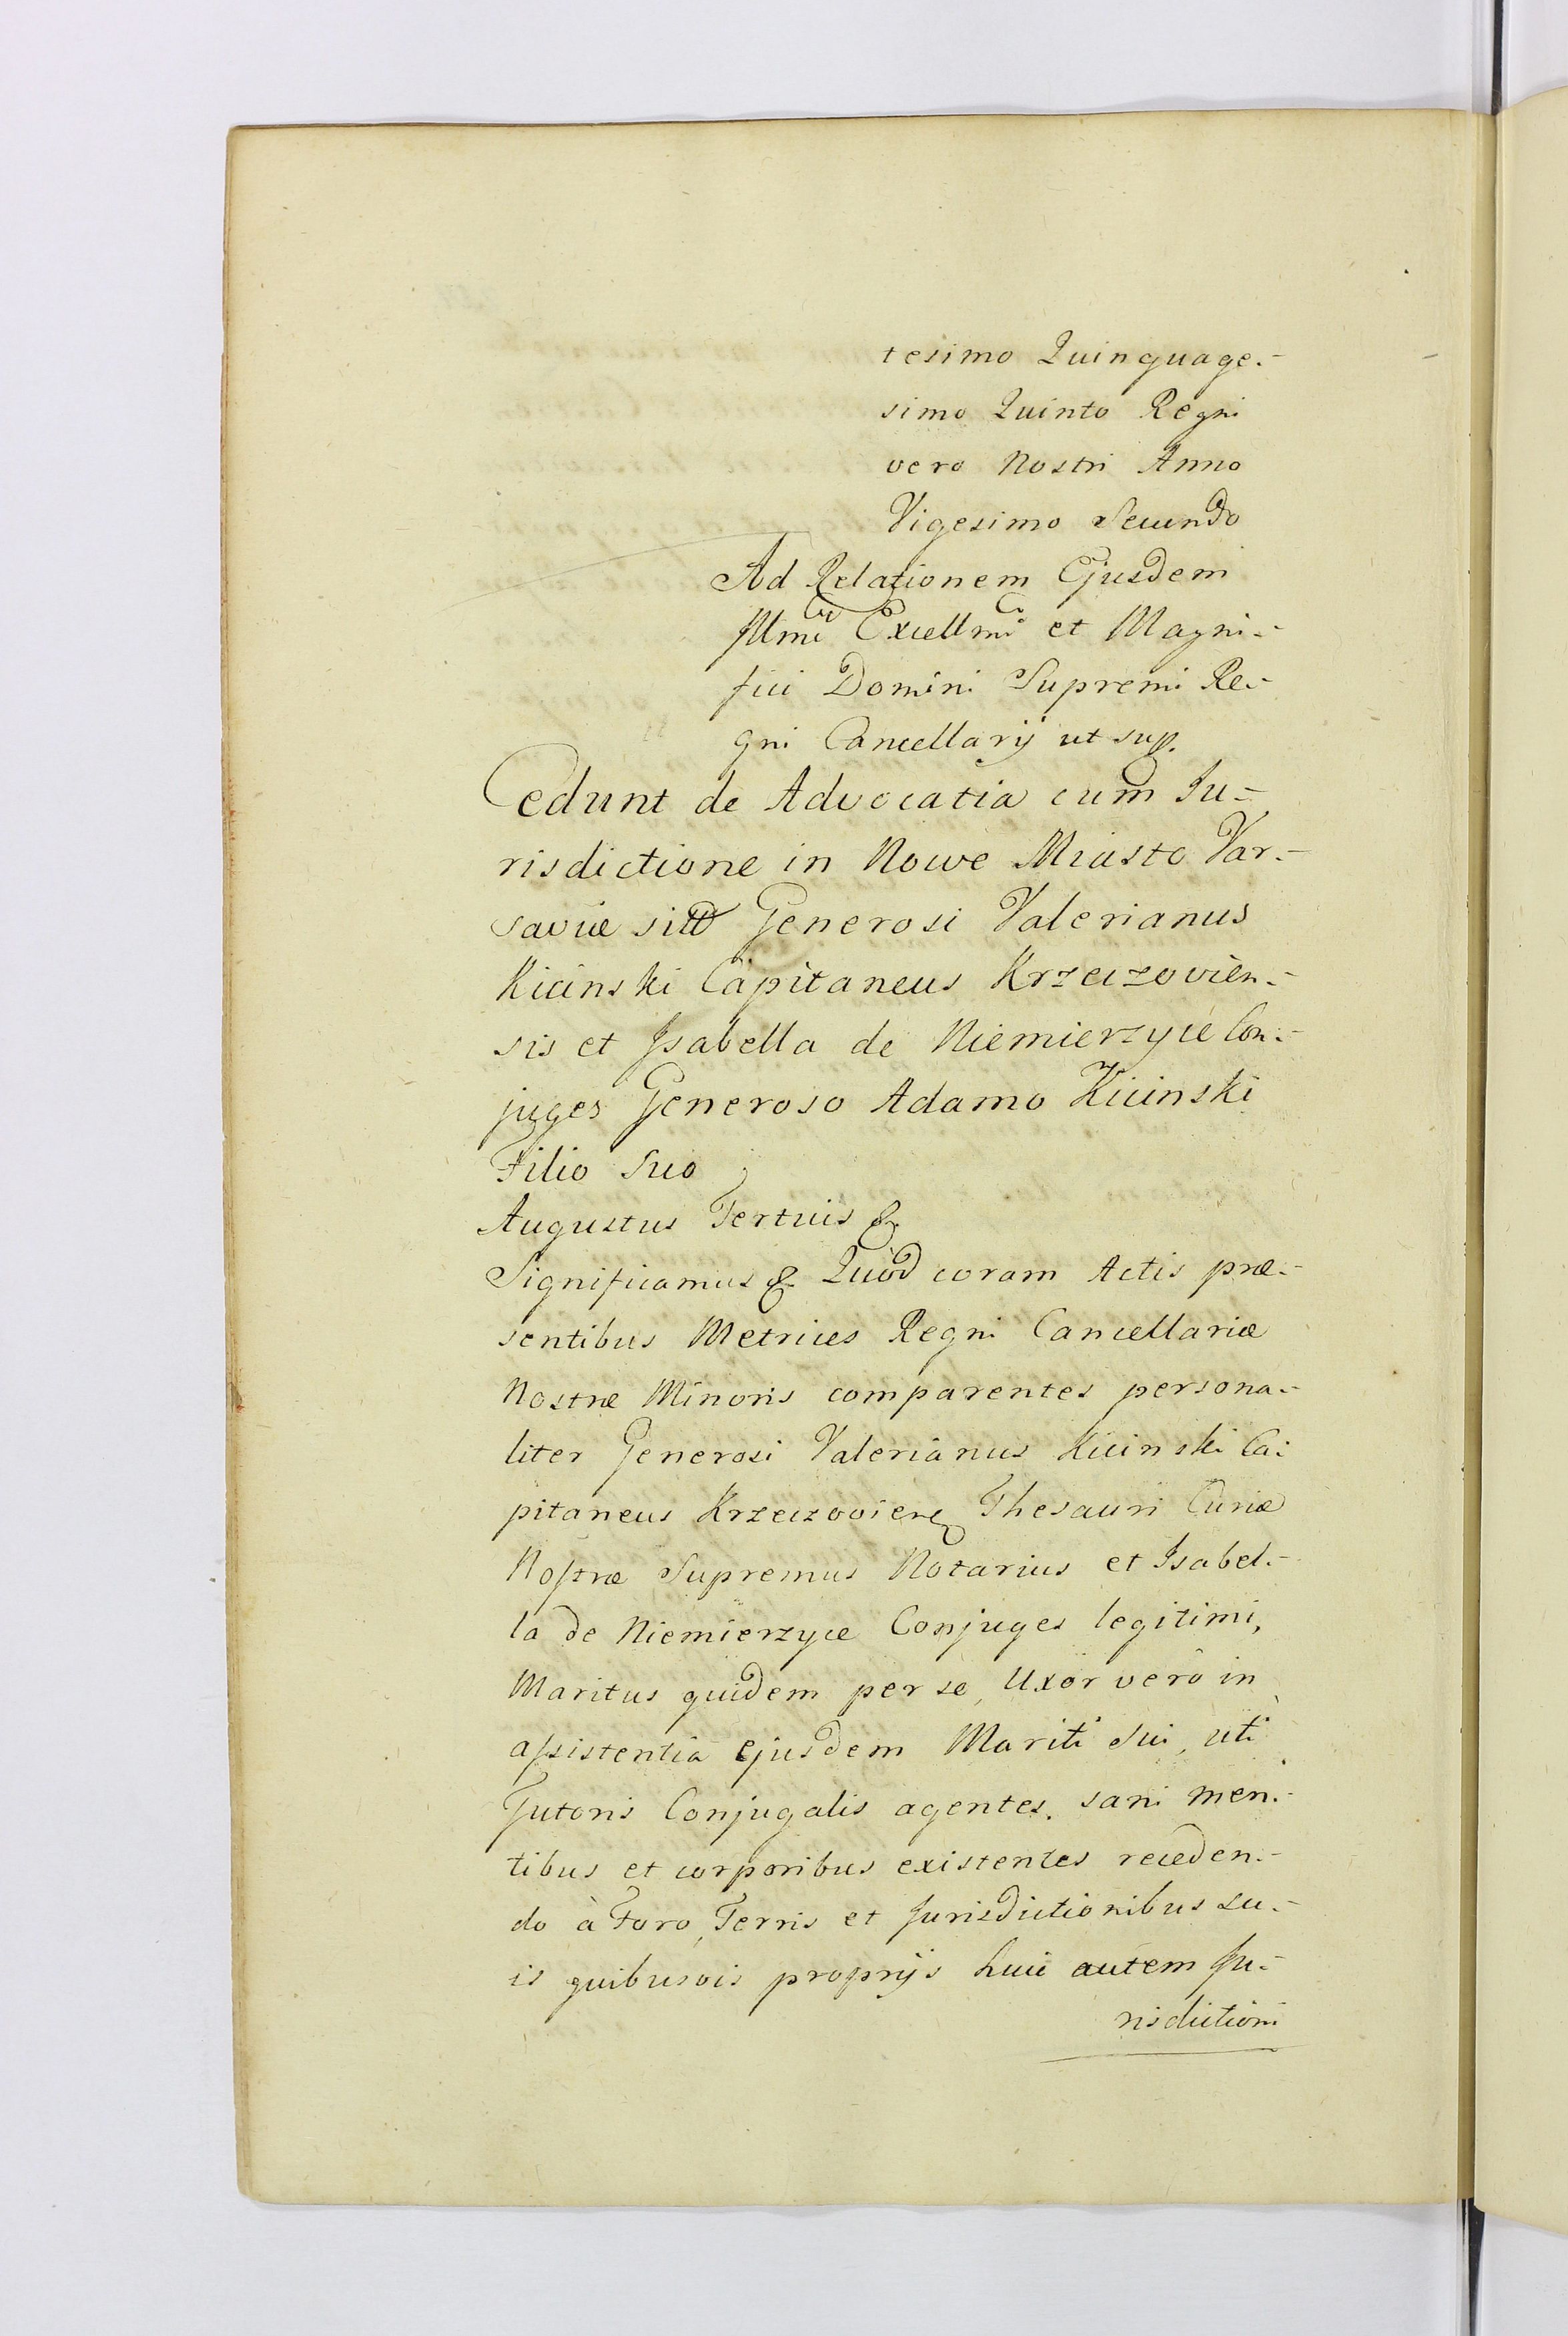 tesimo Quinquage-
simo Quinto Regni
vero Nostri Anno
Vigesimo Secundo
Ad Relationem Ejusdem
Illmi Excellmi et Magni-
fici Domini Supremi Re-
gni Cancellarij ut sup.
Cedunt de Advocatia cum Ju-
risdictione in Nowe Miasto Var-
saviæ sitt Generosi Valerianus
Kicinski Capitaneus Krzeczovien-
sis et Isabella de Niemierzyce Con-
juges Generoso Adamo Kicinski
Filio Suo
Augustus Tertius &
Significamus & Quòd coram Actis præ-
sentibus Metrices Regni Cancellariæ
Nostræ Minoris comparentes persona-
liter Generosi Valerianus Kicinski Ca-
pitaneus Krzeczovien Thesauri Curiæ
Nostræ Supremus Notarius et Isabel-
la de Niemierzyce Conjuges legitimi,
Maritus quidem per se, Uxor verò in
assistentia ejusdem Mariti Sui, uti
Tutoris Conjugalis agentes. sani men-
tibus et corporibus existentes receden-
do à Foro, Terris et Jurisdictionibus su-
is quibusvis proprijs huic autem Ju-
risdictioni